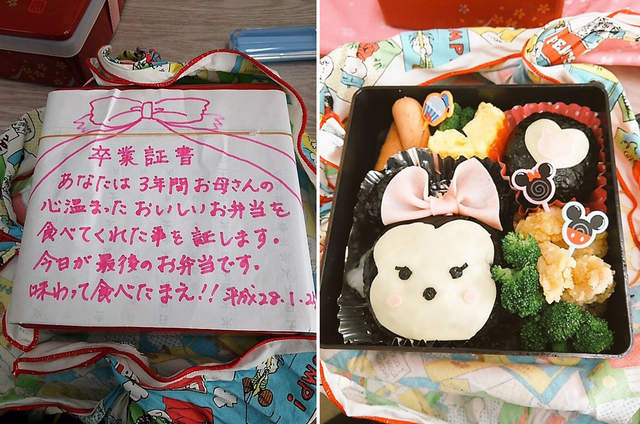 卒業証書
あなたは3年間お母さんの
心温まったおいしいお弁当を
食べてくれた事を証します。
今日が最後のお弁当です。
味わって食べたまえ!! 平成28.1.2